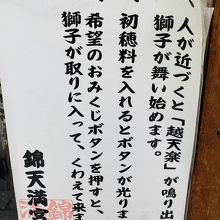 人が近づくと「越天楽」が鳴り出
獅子が舞い始めます。
初穂料を入れるとボタンが光りま
希望のおみくじボタンを押すと、
獅子が取りに入って、くわえて来ま
錦天満宮